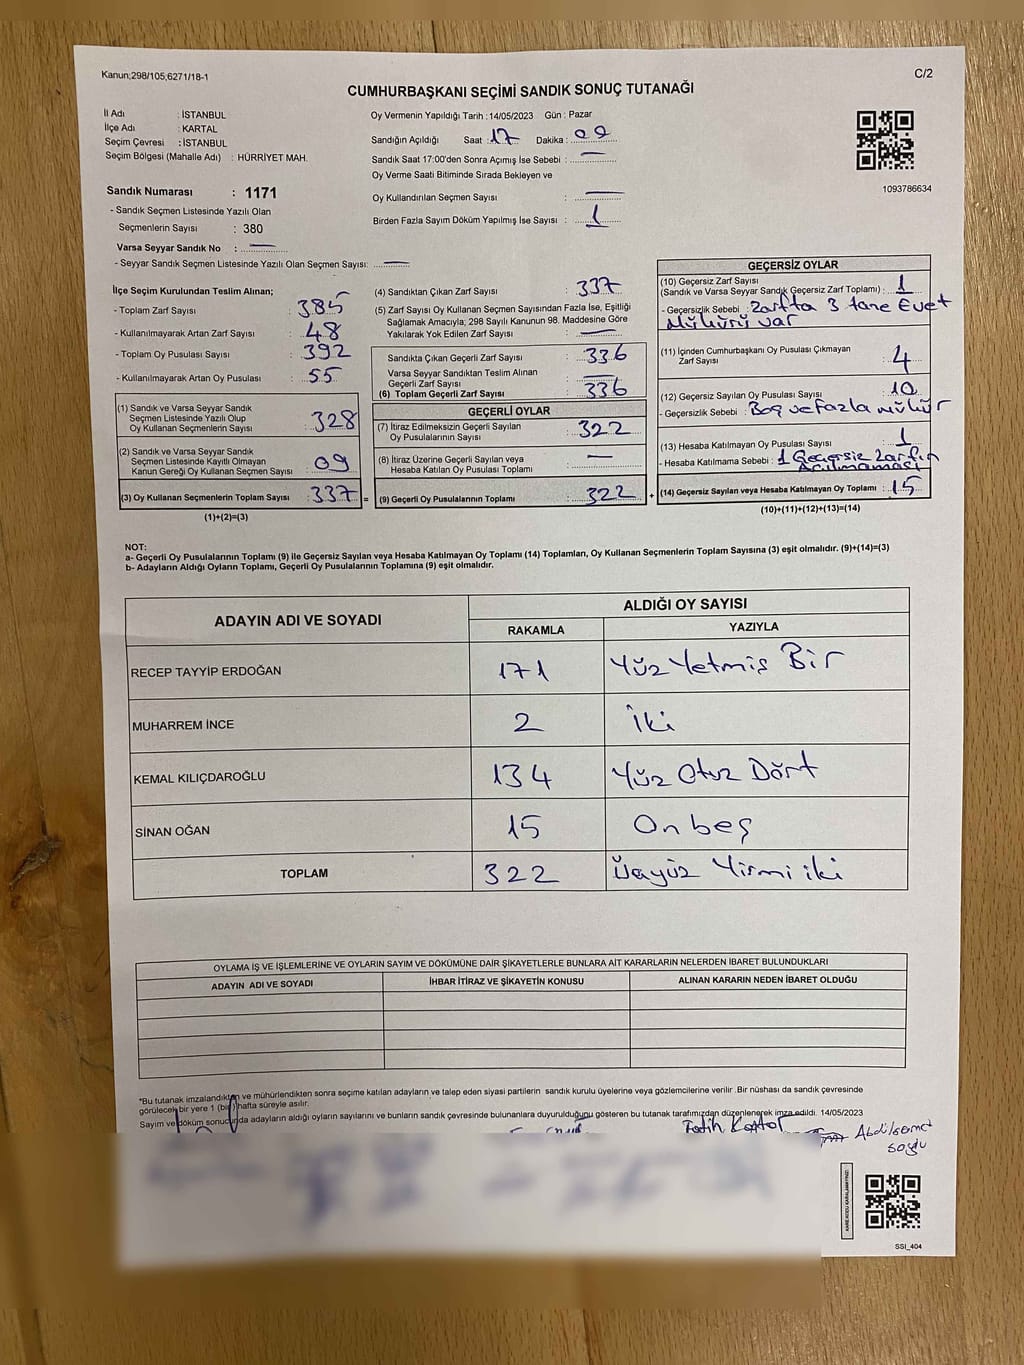 Kanun;298/105;6271/18-1
C/2
CUMHURBAŞKANI SEÇİMİ SANDIK SONUÇ TUTANAĞI
İl Adı : İSTANBUL
İlçe Adı : KARTAL
Seçim Çevresi : İSTANBUL
Seçim Bölgesi (Mahalle Adı) : HÜRRİYET MAH.
Sandık Numarası : 1171
- Sandık Seçmen Listesinde Yazılı Olan
Seçmenlerin Sayısı : 380
Varsa Seyyar Sandık No : —
- Seyyar Sandık Seçmen Listesinde Yazılı Olan Seçmen Sayısı: —
Oy Vermenin Yapıldığı Tarih : 14/05/2023 Gün : Pazar
Sandığın Açıldığı Saat : 17 Dakika : 09
Sandık Saat 17:00'den Sonra Açımış İse Sebebi : —
Oy Verme Saati Bitiminde Sırada Bekleyen ve
Oy Kullandırılan Seçmen Sayısı : —
Birden Fazla Sayım Döküm Yapılmış İse Sayısı : 1
1093786634
İlçe Seçim Kurulundan Teslim Alınan;
- Toplam Zarf Sayısı : 385
- Kullanılmayarak Artan Zarf Sayısı : 48
- Toplam Oy Pusulası Sayısı : 392
- Kullanılmayarak Artan Oy Pusulası : 55
(1) Sandık ve Varsa Seyyar Sandık
Seçmen Listesinde Yazılı Olup
Oy Kullanan Seçmenlerin Sayısı : 328
(2) Sandık ve Varsa Seyyar Sandık
Seçmen Listesinde Kayıtlı Olmayan
Kanun Gereği Oy Kullanan Seçmen Sayısı : 09
(3) Oy Kullanan Seçmenlerin Toplam Sayısı : 337 =
(1)+(2)=(3)
(4) Sandıktan Çıkan Zarf Sayısı : 337
(5) Zarf Sayısı Oy Kullanan Seçmen Sayısından Fazla İse, Eşitliği
Sağlamak Amacıyla; 298 Sayılı Kanunun 98. Maddesine Göre
Yakılarak Yok Edilen Zarf Sayısı : —
Sandıkta Çıkan Geçerli Zarf Sayısı : 336
Varsa Seyyar Sandıktan Teslim Alınan
Geçerli Zarf Sayısı : —
(6) Toplam Geçerli Zarf Sayısı : 336
GEÇERLİ OYLAR
(7) İtiraz Edilmeksizin Geçerli Sayılan
Oy Pusulalarının Sayısı : 322
(8) İtiraz Üzerine Geçerli Sayılan veya
Hesaba Katılan Oy Pusulası Toplamı : —
(9) Geçerli Oy Pusulalarının Toplamı : 322 +
GEÇERSİZ OYLAR
(10) Geçersiz Zarf Sayısı
(Sandık ve Varsa Seyyar Sandık Geçersiz Zarf Toplamı) : 1
- Geçersizlik Sebebi : Zarfta 3 tane Evet
Mühürü var
(11) İçinden Cumhurbaşkanı Oy Pusulası Çıkmayan
Zarf Sayısı : 4
(12) Geçersiz Sayılan Oy Pusulası Sayısı : 10
- Geçersizlik Sebebi : Boş ve fazla mühür
(13) Hesaba Katılmayan Oy Pusulası Sayısı : 1
- Hesaba Katılmama Sebebi : 1 Geçersiz Zarfın
Açılmaması
(14) Geçersiz Sayılan veya Hesaba Katılmayan Oy Toplamı : 15
(10)+(11)+(12)+(13)=(14)
NOT:
a- Geçerli Oy Pusulalarının Toplamı (9) ile Geçersiz Sayılan veya Hesaba Katılmayan Oy Toplamı (14) Toplamları, Oy Kullanan Seçmenlerin Toplam Sayısına (3) eşit olmalıdır. (9)+(14)=(3)
b- Adayların Aldığı Oyların Toplamı, Geçerli Oy Pusulalarının Toplamına (9) eşit olmalıdır.
ADAYIN ADI VE SOYADI
ALDIĞI OY SAYISI
RAKAMLA YAZIYLA
RECEP TAYYİP ERDOĞAN 171 Yüz Yetmiş Bir
MUHARREM İNCE 2 İki
KEMAL KILIÇDAROĞLU 134 Yüz Otuz Dört
SİNAN OĞAN 15 On beş
TOPLAM 322 Üçyüz Yirmi iki
OYLAMA İŞ VE İŞLEMLERİNE VE OYLARIN SAYIM VE DÖKÜMÜNE DAİR ŞİKAYETLERLE BUNLARA AİT KARARLARIN NELERDEN İBARET BULUNDUKLARI
ADAYIN ADI VE SOYADI İHBAR İTİRAZ VE ŞİKAYETİN KONUSU ALINAN KARARIN NEDEN İBARET OLDUĞU
*Bu tutanak imzalandıktan ve mühürlendikten sonra seçime katılan adayların ve talep eden siyasi partilerin sandık kurulu üyelerine veya gözlemcilerine verilir .Bir nüshası da sandık çevresinde
görülecek bir yere 1 (bir) hafta süreyle asılır.
Sayım ve döküm sonucunda adayların aldığı oyların sayılarını ve bunların sandık çevresinde bulunanlara duyurulduğunu gösteren bu tutanak tarafımızdan düzenlenerek imza edildi. 14/05/2023
Fatih
SSİ_404